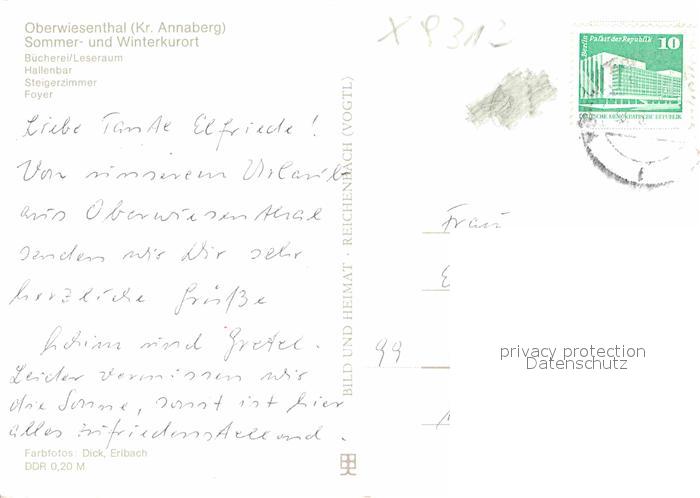 Oberwiesenthal (Kr. Annaberg)
Sommer- und Winterkurort
Bücherei/Leseraum
Hallenbar
Steigerzimmer
Foyer
Liebe Tante Elfriede!
Von unserem Urlaub
aus Oberwiesenthal
senden wir Dir sehr
herzliche Grüße
und Gretel.
Leider vermissen wir
die Sonne, sonst ist hier
alles zufriedenstellend.
Farbfotos: Dick, Erlbach
DDR 0,20 M
BILD UND HEIMAT · REICHENBACH (VOGTL)
X 9312
Berlin Palast der Republik
10
DEUTSCHE DEMOKRATISCHE REPUBLIK
Frau
E
99
privacy protection
Datenschutz